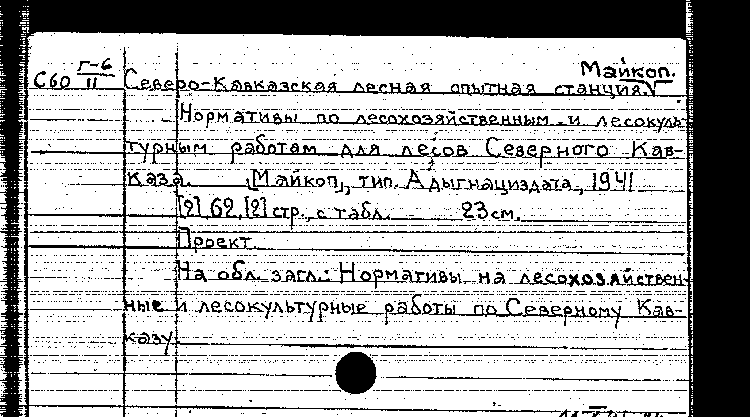 Майкоп.
С60 Г-6/II Северо-Кавказская лесная опытная станция.
Нормативы по лесохозяйственным и лесокуль-
турным работам для лесов Северного Кав-
каза. [Майкоп], тип. Адыгнациздата, 1941
[2], 62, [2] стр., с табл. 23 см.
Проект
На обл. загл.: Нормативы на лесохозяйствен-
ные и лесокультурные работы по Северному Кав-
казу